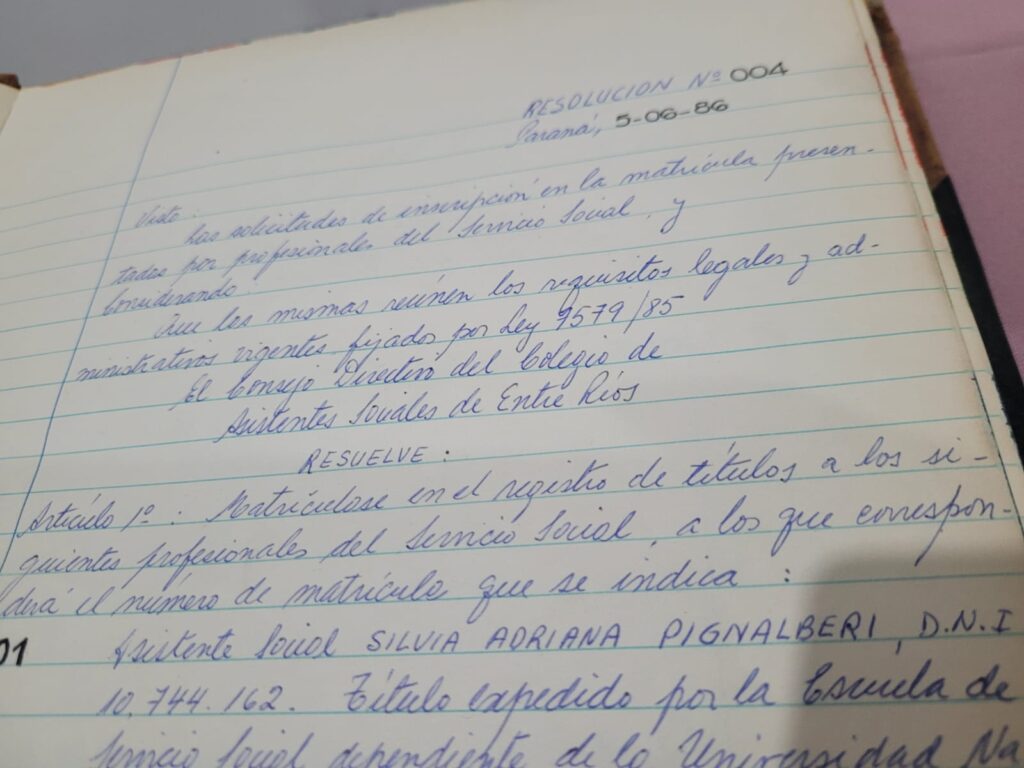 RESOLUCION Nº 004
Paraná, 5-06-86
Visto:
Las solicitudes de inscripción en la matrícula presen-
tadas por profesionales del Servicio Social, y
Considerando
Que las mismas reúnen los requisitos legales y ad-
ministrativos vigentes fijados por Ley 7579/85
El Consejo Directivo del Colegio de
Asistentes Sociales de Entre Ríos
RESUELVE :
Artículo 1º : Matricúlose en el registro de títulos a los si-
guientes profesionales del Servicio Social, a los que correspon-
derá el número de matrícula que se indica :
01 Asistente Social SILVIA ADRIANA PIGNALBERI, D.N.I
10.744.162. Título expedido por la Escuela de
Servicio Social dependiente de la Universidad Na